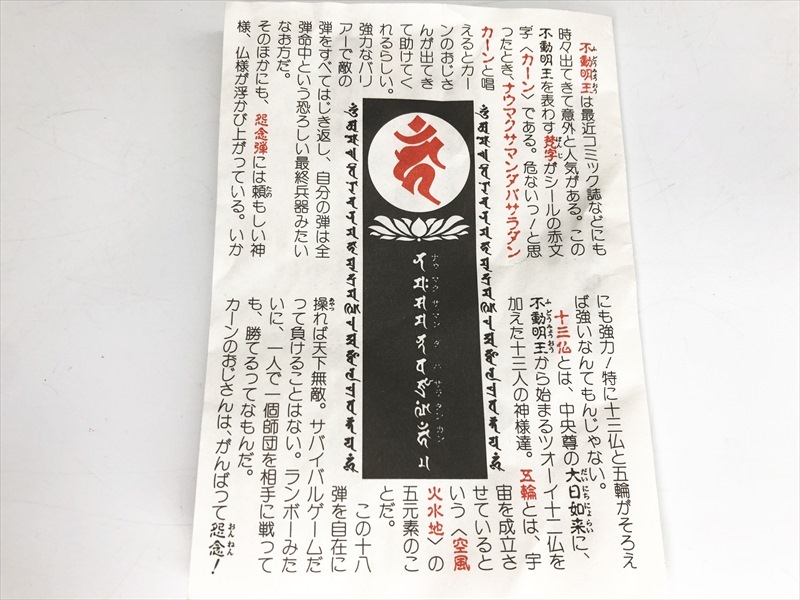 不動明王は最近コミック誌などにも
時々出てきて意外と人気がある。この
不動明王を表わす梵字がシールの赤文
字〈カーン〉である。危ないっ!と思
ったとき、ナウマクサマンダバサラダン
カーンと唱
えるとカー
ンのおじさ
んが出てき
て助けてく
れるらしい。
強力なバリ
アーで敵の
弾をすべてはじき返し、自分の弾は全
弾命中という恐ろしい最終兵器みたい
なお方だ。
そのほかにも、怨念弾には頼もしい神
様、仏様が浮かび上がっている。いか
にも強力!特に十三仏と五輪がそろえ
ば強いなんてもんじゃない。
十三仏とは、中央尊の大日如来に、
不動明王から始まるツオーイ十二仏を
加えた十三人の神様達。五輪とは、宇
宙を成立さ
せていると
いう〈空風
火水地〉の
五元素のこ
とだ。
この十八
弾を自在に
操れば天下無敵。サバイバルゲームだ
って負けることはない。ランボーみた
いに、一人で一個師団を相手に戦って
も、勝てるってなもんだ。
カーンのおじさんは、がんばって怨念!